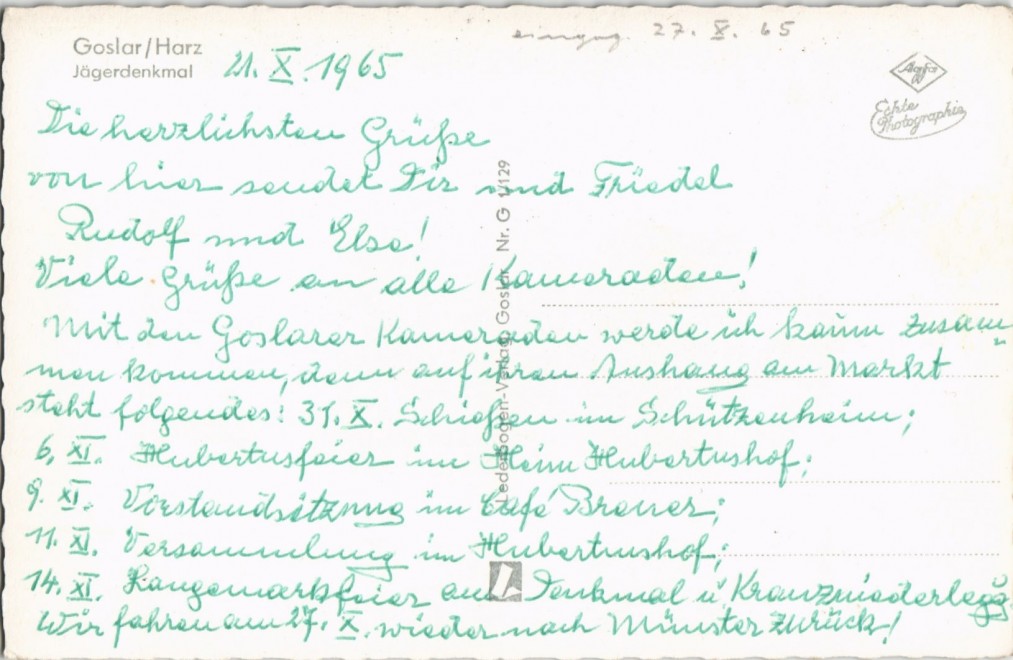 eingeg. 27. X. 65
Goslar/Harz
Jägerdenkmal
21. X. 1965
Agfa
Echte
Photographie
Die herzlichsten Grüße
von hier sendet Dir und Friedel
Rudolf und Else!
Viele Grüße an alle Kameraden!
Mit den Goslarer Kameraden werde ich kaum zusam=
men kommen, denn auf ihren Aushang am Markt
steht folgendes: 31. X. Schießen im Schützenheim;
6. XI. Hubertusfeier im Heim Hubertushof;
9. XI. Vorstandsitzung im Café Brener;
11. XI. Versammlung im Hubertushof;
14. XI. Langemarkfeier am Denkmal u. Kranzniederlegg.
Wir fahren am 27. X. wieder nach Münster zurück!
Lederbogen-Verlag, Goslar, Nr. G 1/129